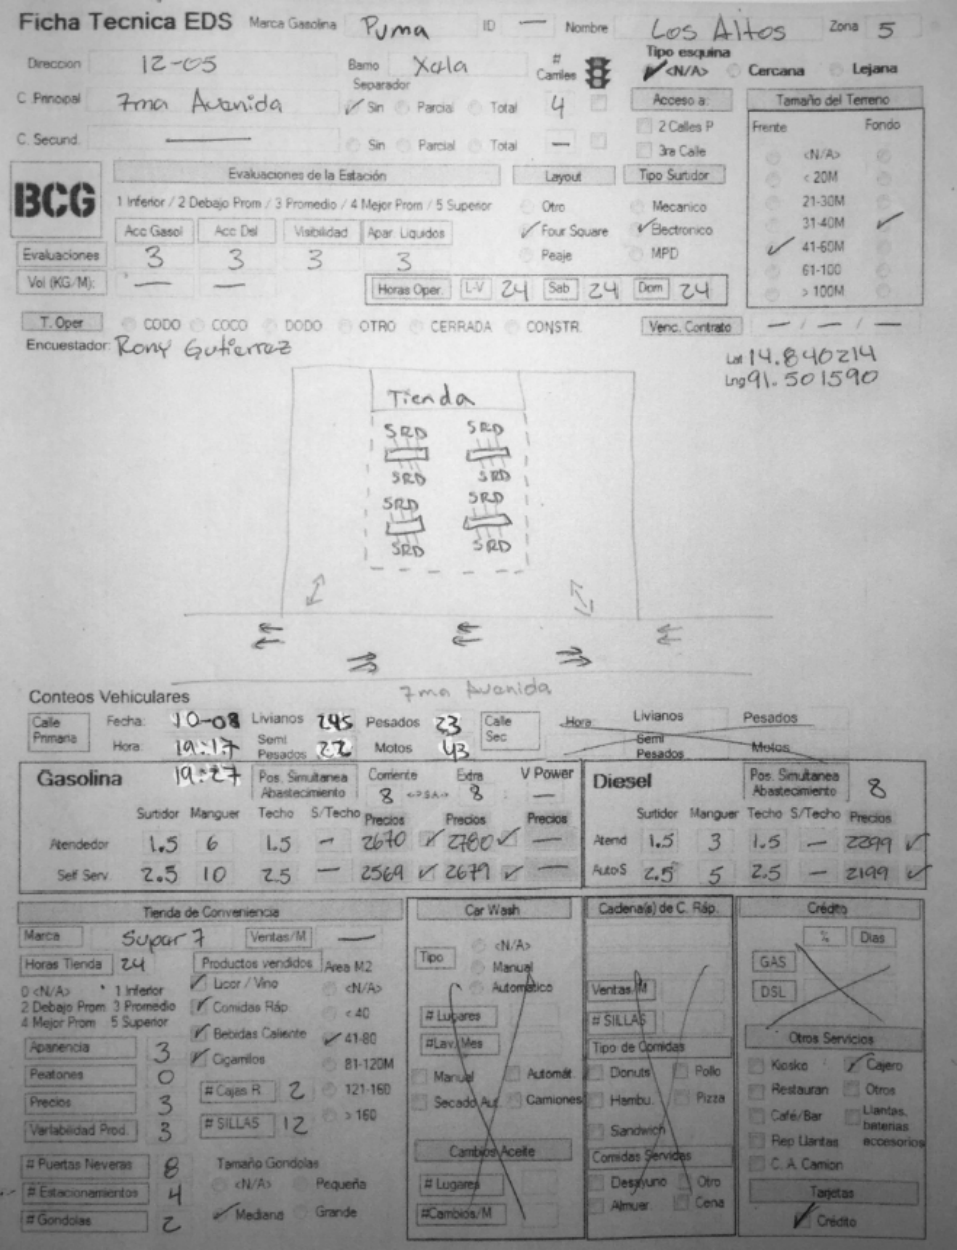 Ficha Tecnica EDS Marca Gasolina Puma ID — Nombre Los Altos Zona 5
Direccion 12-05 Barrio Xala # Carriles Tipo esquina ✓ <N/A> Cercana Lejana
Separador
C Principal 7ma Avenida ✓ Sin Parcial Total 4 Acceso a: Tamaño del Terreno
2 Calles P Frente Fondo
C. Secund. — Sin Parcial Total — 3ra Calle <N/A>
BCG Evaluaciones de la Estación Layout Tipo Surtidor < 20M
1 Inferior / 2 Debajo Prom / 3 Promedio / 4 Mejor Prom / 5 Superior Otro Mecanico 21-30M
Acc Gasol Acc Dsl Visibilidad Apar. Liquidos ✓ Four Square ✓ Electronico 31-40M ✓
Evaluaciones 3 3 3 3 Peaje MPD ✓ 41-60M
61-100
Vol (KG/M): — — Horas Oper. L-V 24 Sab 24 Dom 24 > 100M
T. Oper CODO COCO DODO OTRO CERRADA CONSTR. Venc. Contrato — / — / —
Encuestador: Rony Gutierrez Lat 14.840214
Lng 91.501590
Tienda
SRD SRD
SRD SRD
SRD SRD
SRD SRD
7ma Avenida
Conteos Vehiculares
Calle Primaria Fecha: 10-08 Livianos 245 Pesados 23 Calle Sec Hora Livianos Pesados
Hora 19:17 Semi Pesados 22 Motos 43 Semi Pesados Motos
Gasolina 19:27 Pos. Simultanea Abastecimiento Corriente 8 <-SA-> Extra 8 V Power — Diesel Pos. Simultanea Abastecimiento 8
Surtidor Manguer Techo S/Techo Precios Precios Precios Surtidor Manguer Techo S/Techo Precios
Atendedor 1.5 6 1.5 — 2670 ✓ 2780 ✓ — Atend 1.5 3 1.5 — 2299 ✓
Self Serv 2.5 10 2.5 — 2569 ✓ 2679 ✓ — AutoS 2.5 5 2.5 — 2199 ✓
Tienda de Conveniencia Car Wash Cadena(s) de C. Ráp. Crédito
Marca Super 7 Ventas/M — <N/A> % Dias
Horas Tienda 24 Productos vendidos Area M2 Tipo Manual GAS
0 <N/A> 1 Inferior ✓ Licor / Vino <N/A> Automático Ventas/M DSL
2 Debajo Prom 3 Promedio ✓ Comidas Ráp < 40 # Lugares # SILLAS
4 Mejor Prom 5 Superior ✓ Bebidas Caliente ✓ 41-80 #Lav. Mes Tipo de Comidas Otros Servicios
Apariencia 3 ✓ Cigarrillos 81-120M Manual Automát. Donuts Pollo Kiosko ✓ Cajero
Peatones 0 # Cajas R 2 121-160 Secado Aut. Camiones Hambu. Pizza Restauran Otros
Precios 3 # SILLAS 12 > 160 Sandwich Café/Bar Llantas, baterias accesorios
Variabilidad Prod. 3 Cambios Aceite Comidas Servidas Rep Llantas
# Puertas Neveras 8 Tamaño Gondolas # Lugares Desayuno Otro C. A. Camion
# Estacionamientos 4 <N/A> Pequeña #Cambios/M Almuer Cena Tarjetas
# Gondolas 2 ✓ Mediana Grande ✓ Crédito